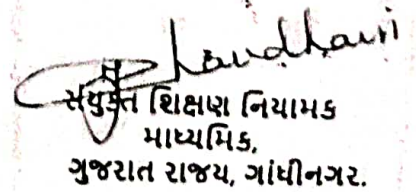 Chaudhari
સંયુક્ત શિક્ષણ નિયામક
માધ્યમિક,
ગુજરાત રાજય, ગાંધીનગર.